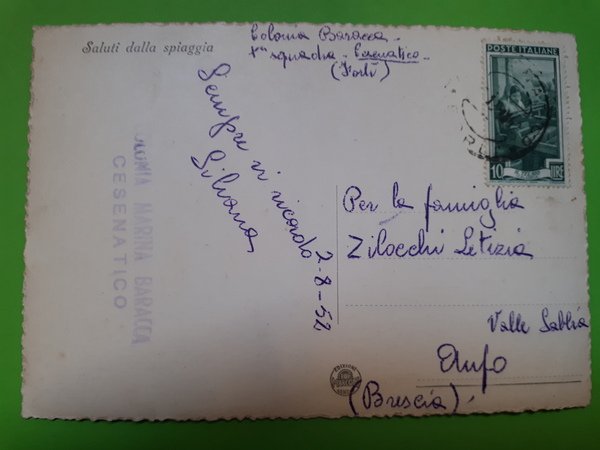 Saluti dalla spiaggia
Colonia Baracca -
1ª squadra - Cesenatico -
(Forlì)
POSTE ITALIANE
10 LIRE
Sempre vi ricordo
Silvana
2-8-52
Per la famiglia
Zilocchi Letizia
Valle Sabbia
Anfo
(Brescia)
COLONIA MARINA BARACCA
CESENATICO